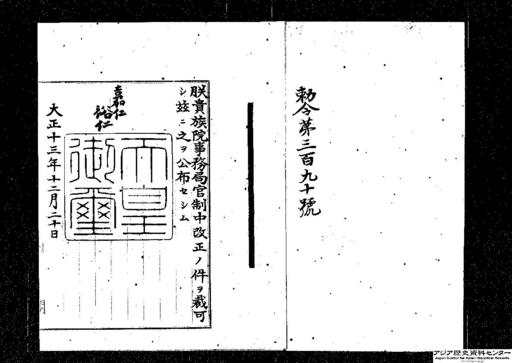 勅令第三百九十號
朕貴族院事務局官制中改正ノ件ヲ裁可
シ茲ニ之ヲ公布セシム
嘉仁
裕仁
天皇
御璽
大正十三年十二月二十日
アジア歴史資料センター
Japan Center for Asian Historical Records